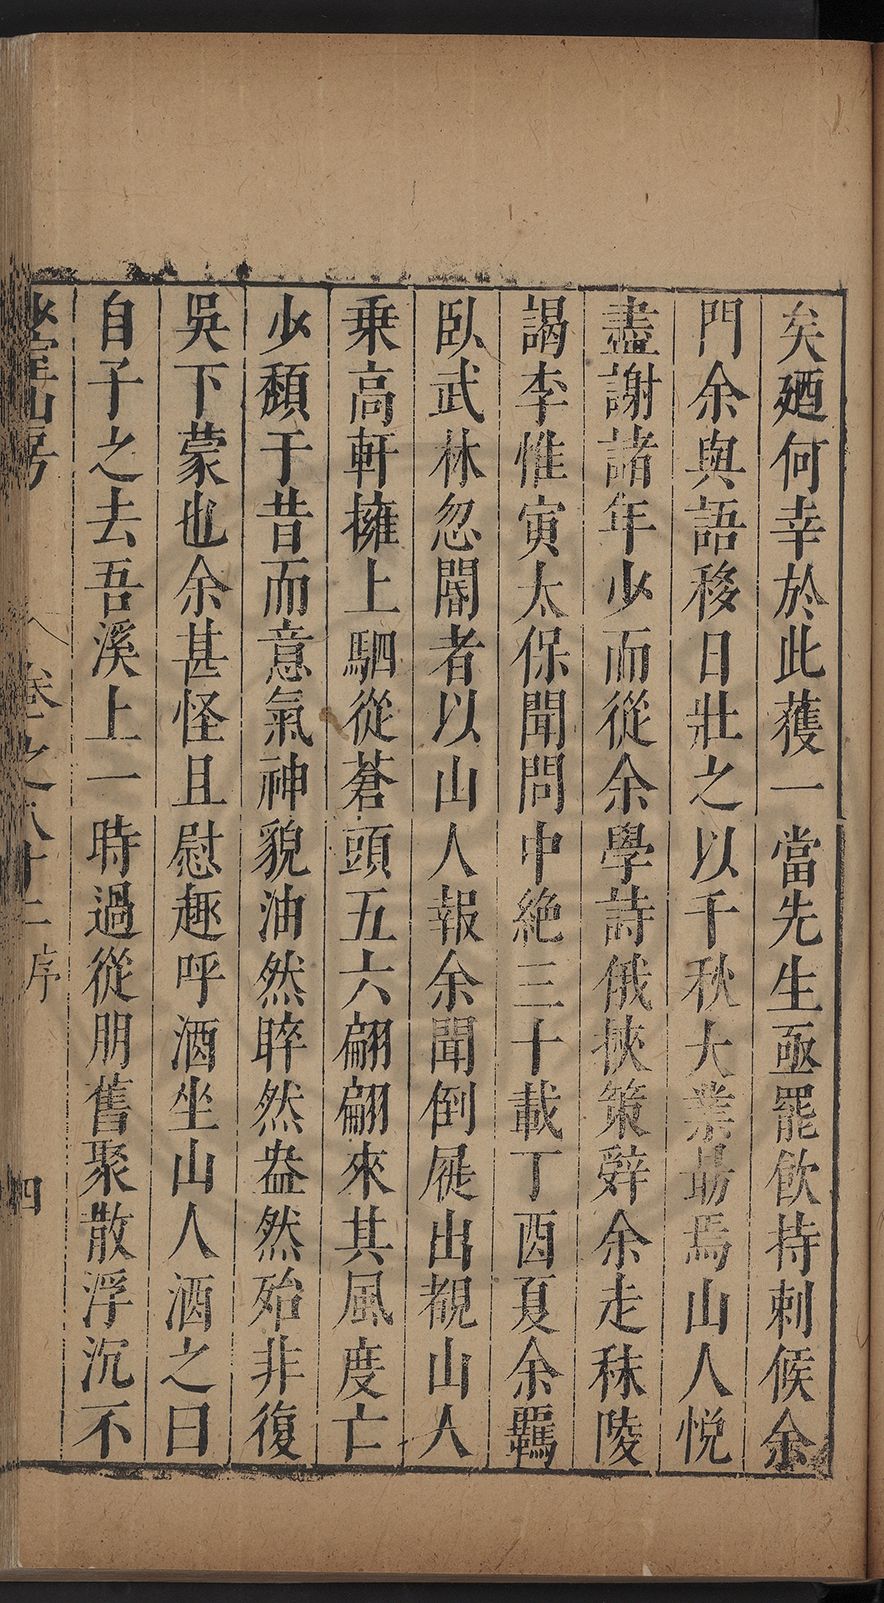 矣廼何幸於此獲一當先生亟罷飲持刺候余
門余與語移日壯之以千秋大業勗焉山人悦
盡謝諸年少而從余學詩俄挾策辤余走秣陵
謁李惟寅太保聞問中絶三十載丁酉夏余羈
臥武林忽閽者以山人報余聞倒屣出覩山人
乗高軒擁上駟從蒼頭五六翩翩來其風度亡
少頽于昔而意氣神貌油然睟然盎然殆非復
吳下蒙也余甚怪且慰趣呼酒坐山人酒之曰
自子之去吾溪上一時過從朋舊聚散浮沉不
山房 卷之八十二序 四